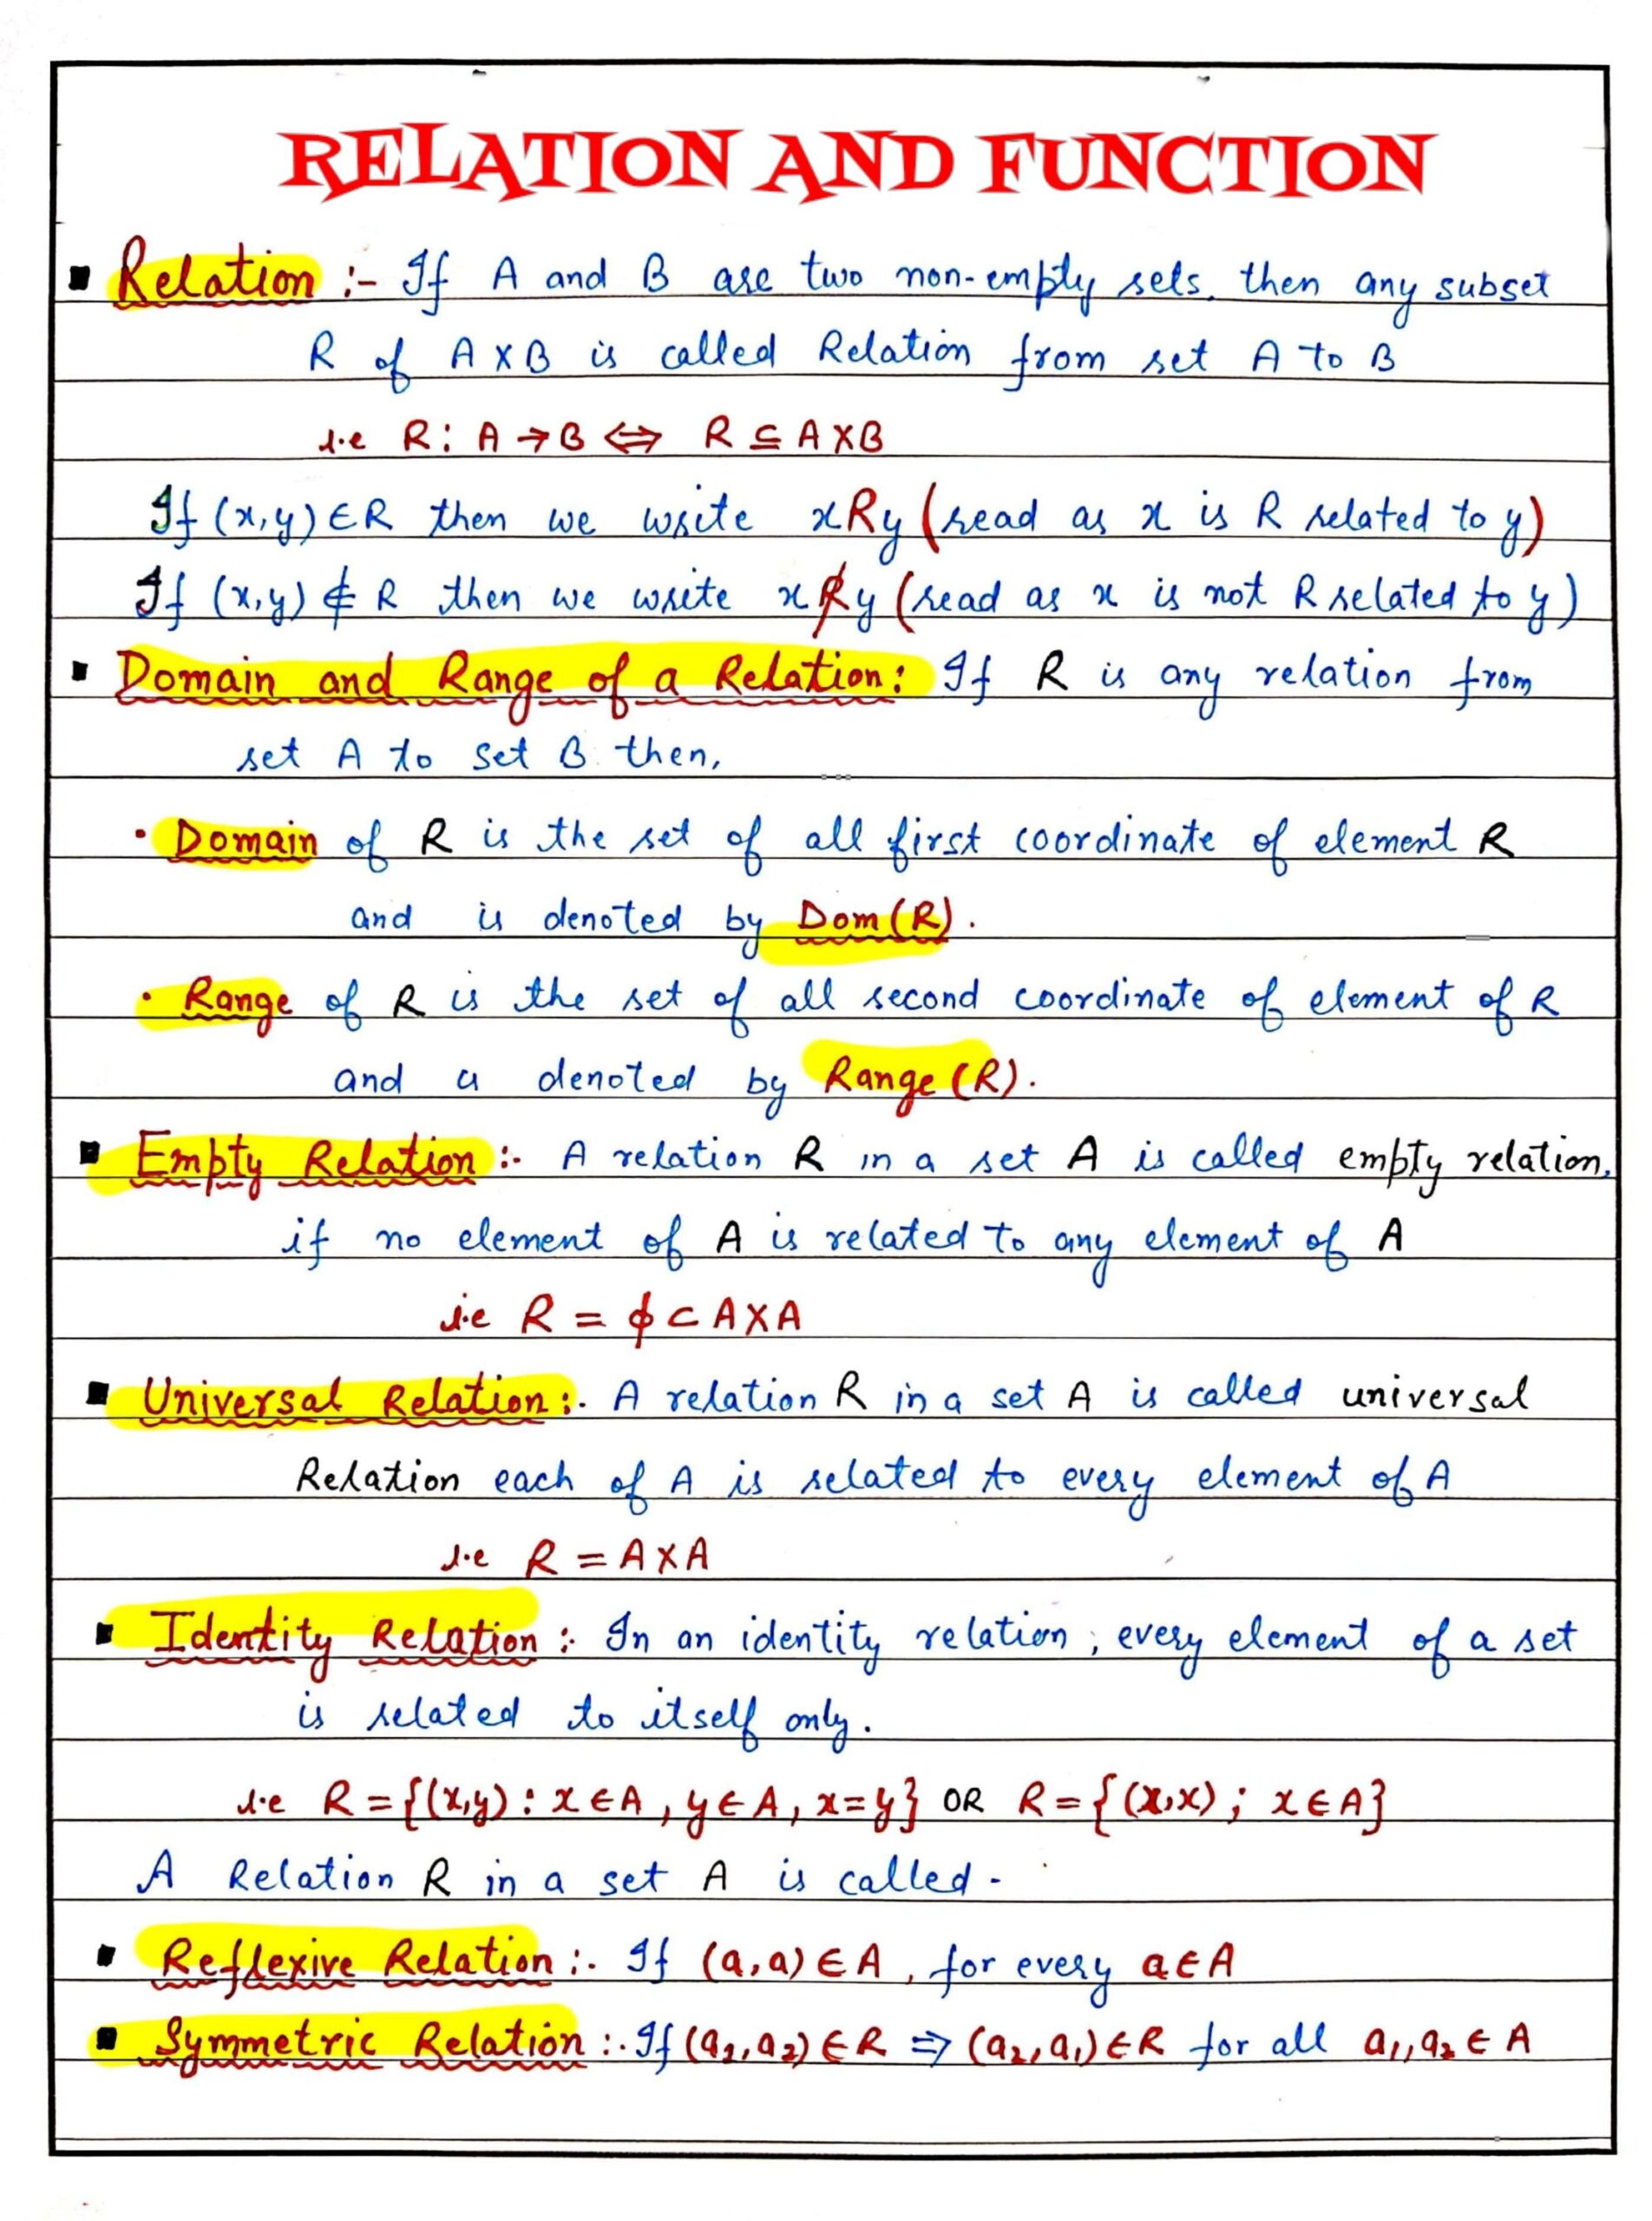 RELATION AND FUNCTION
▪ Relation :- If A and B are two non-empty sets, then any subset
R of A×B is called Relation from set A to B
i.e R: A→B ⇔ R ⊆ A×B
If (x,y) ∈ R then we write xRy (read as x is R related to y)
If (x,y) ∉ R then we write xR̸y (read as x is not R related to y)
▪ Domain and Range of a Relation: If R is any relation from
set A to set B then,
• Domain of R is the set of all first coordinate of element R
and is denoted by Dom(R).
• Range of R is the set of all second coordinate of element of R
and is denoted by Range(R).
▪ Empty Relation :- A relation R in a set A is called empty relation,
if no element of A is related to any element of A
i.e R = ϕ ⊂ A×A
▪ Universal Relation :- A relation R in a set A is called universal
Relation each of A is related to every element of A
i.e R = A×A
▪ Identity Relation :- In an identity relation, every element of a set
is related to itself only.
i.e R = {(x,y) : x ∈ A, y ∈ A, x = y} OR R = {(x,x) ; x ∈ A}
A Relation R in a set A is called -
▪ Reflexive Relation :- If (a,a) ∈ A, for every a ∈ A
▪ Symmetric Relation :- If (a₁,a₂) ∈ R ⇒ (a₂,a₁) ∈ R for all a₁,a₂ ∈ A